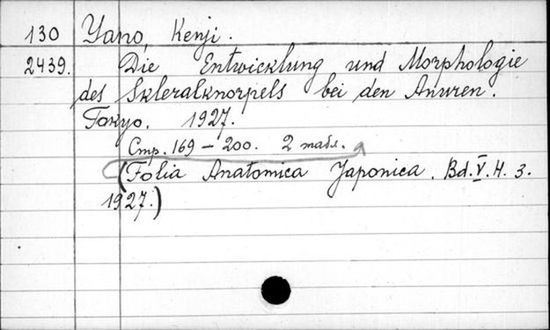 130 Yano, Kenji.
2439. Die Entwicklung und Morphologie
des Skleralknorpels bei den Anuren.
Tokyo. 1927.
Стр. 169 – 200. 2 табл.
(Folia Anatomica Japonica. Bd. V. H. 3.
1927.)